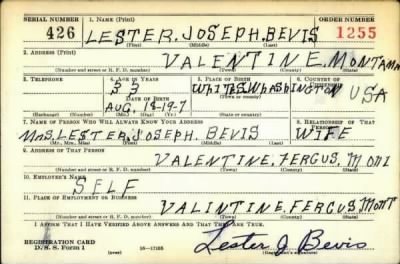 SERIAL NUMBER 1. NAME (Print) ORDER NUMBER
426 LESTER. JOSEPH. BEVIS 1255
(First) (Middle) (Last)
2. ADDRESS (Print)
VALENTINE. MONTANA
(Number and street or R. F. D. number) (Town) (County) (State)
3. TELEPHONE 4. AGE IN YEARS 5. PLACE OF BIRTH 6. COUNTRY OF
33 WASHINGTON USA
DATE OF BIRTH (Town or county)
AUG. 19-
(Exchange) (Number) (Mo.) (Day) (Yr.) (State or country)
7. NAME OF PERSON WHO WILL ALWAYS KNOW YOUR ADDRESS 8. RELATIONSHIP OF THAT PERSON
MRS. LESTER. JOSEPH. BEVIS WIFE
(Mr., Mrs., Miss) (First) (Middle) (Last)
9. ADDRESS OF THAT PERSON
VALENTINE, FERGUS, MONT
(Number and street or R. F. D. number) (Town) (County) (State)
10. EMPLOYER'S NAME
SELF
11. PLACE OF EMPLOYMENT OR BUSINESS
VALINTINE, FERGUS MONT
(Number and street or R. F. D. number) (Town) (County) (State)
I AFFIRM THAT I HAVE VERIFIED ABOVE ANSWERS AND THAT THEY ARE TRUE.
REGISTRATION CARD
D. S. S. Form 1 16-17105 Lester J Bevis